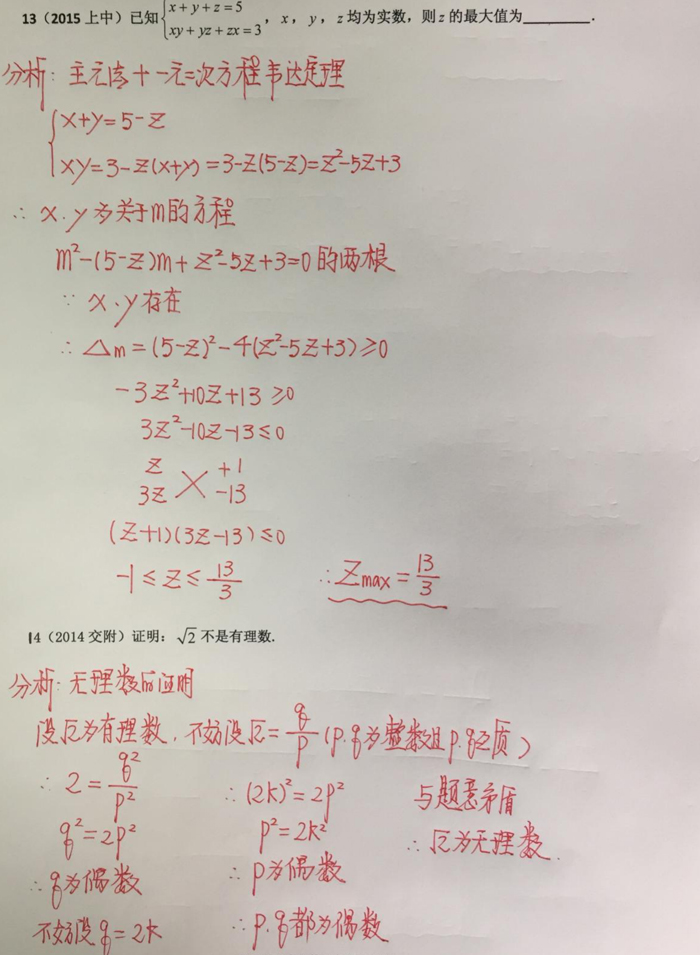 13（2015 上中）已知{x+y+z=5, xy+yz+zx=3，x，y，z 均为实数，则 z 的最大值为________.
分析：主元法+一元二次方程韦达定理
x+y=5-z
xy=3-z(x+y)=3-z(5-z)=z²-5z+3
∴ x、y为关于m的方程
m²-(5-z)m+z²-5z+3=0的两根
∵ x、y存在
∴ △m=(5-z)²-4(z²-5z+3)≥0
-3z²+10z+13≥0
3z²-10z-13≤0
z +1
3z -13
(z+1)(3z-13)≤0
-1≤z≤13/3 ∴ Zmax=13/3
14（2014 交附）证明：√2 不是有理数.
分析：无理数的证明
设√2为有理数，不妨设√2=q/p（p、q为整数且p、q互质）
∴ 2=q²/p²
q²=2p²
∴ q为偶数
不妨设q=2k
∴ (2k)²=2p²
p²=2k²
∴ p为偶数
∴ p、q都为偶数
与题意矛盾
∴ √2为无理数.